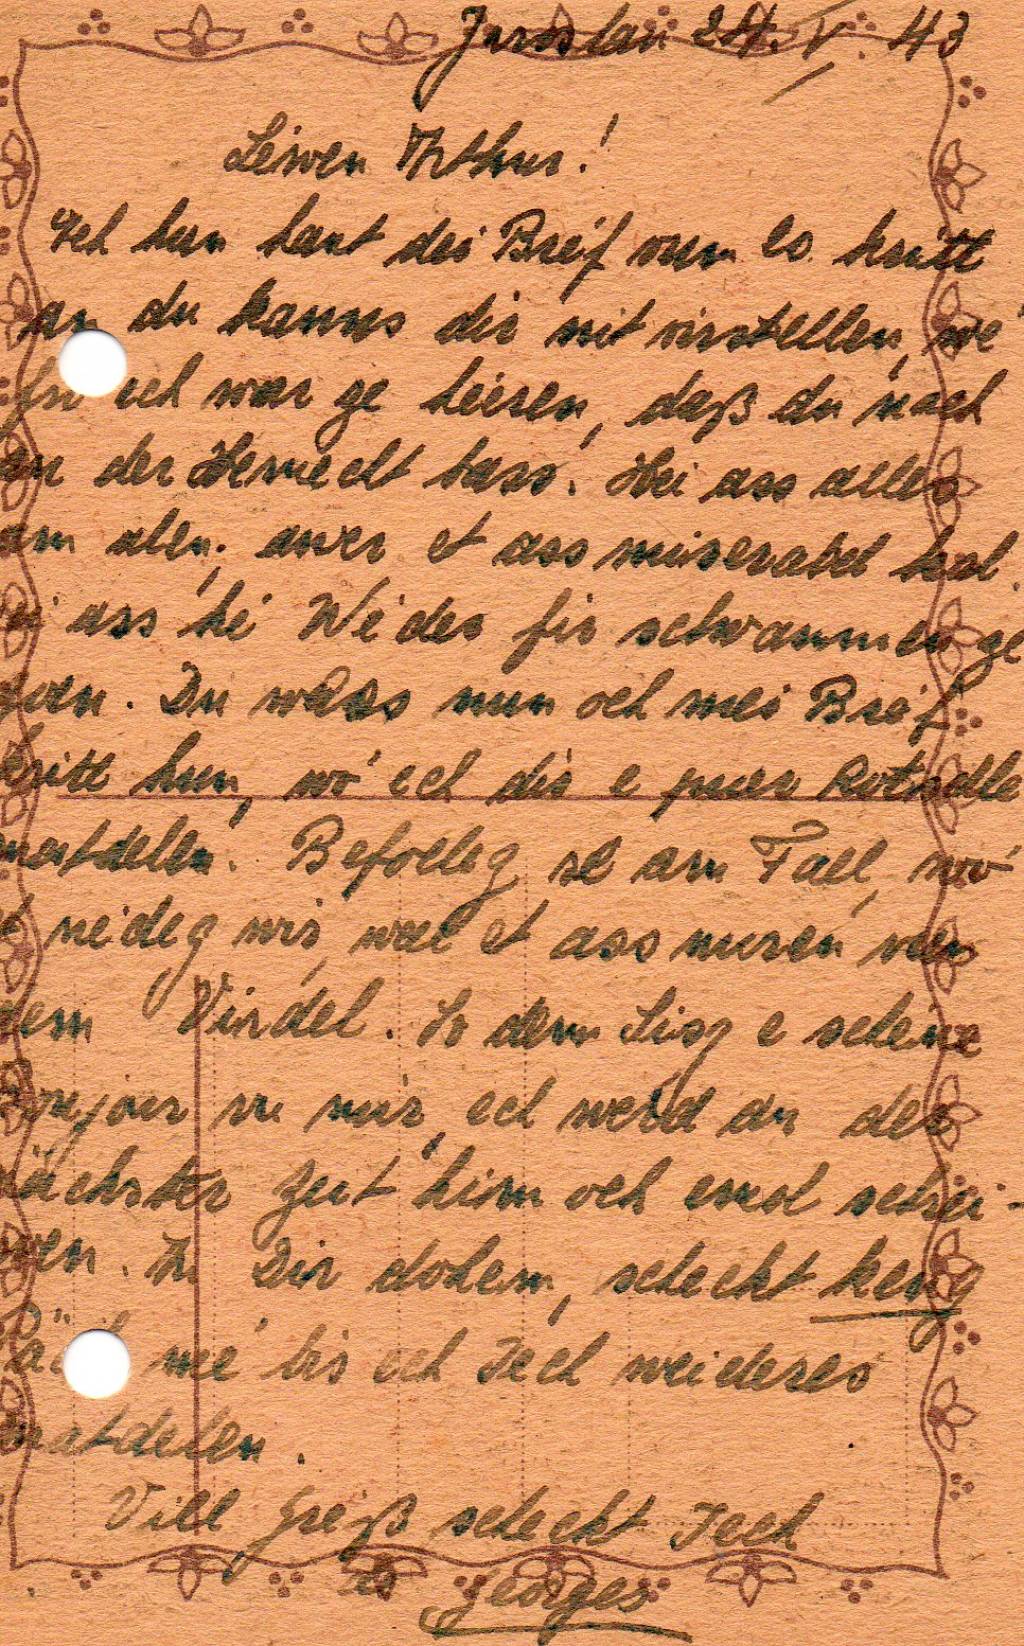 Jaroslau 24. V. 43
Léiwen Arthur!
Ech hun haut dei Breif vum 20. kritt
an du kanns dir nit virstellen, wé
fro ech war ze liesen, daß du nach
an der Hemecht bass. Hei ass alles
am alen, awer et ass miserabel kal.
ass ké Wéder fir schwammen ze
goen. Du wäss nun och mei Breif
kritt hun, wo' ech dir e puer
matdelen. Befolleg se am Fall, wo'
et néideg wir, wel et ass muren ven
dem Vindel. So dem Lisy e schéine
Bonjour vu mir, ech werd an der
nächster Zeit him och emol schrei-
wen. Zu Dir dohem, scheckt keng
mé bis ech Iech weideres
matdelen.
Vill Greiß scheckt Iech
Georges